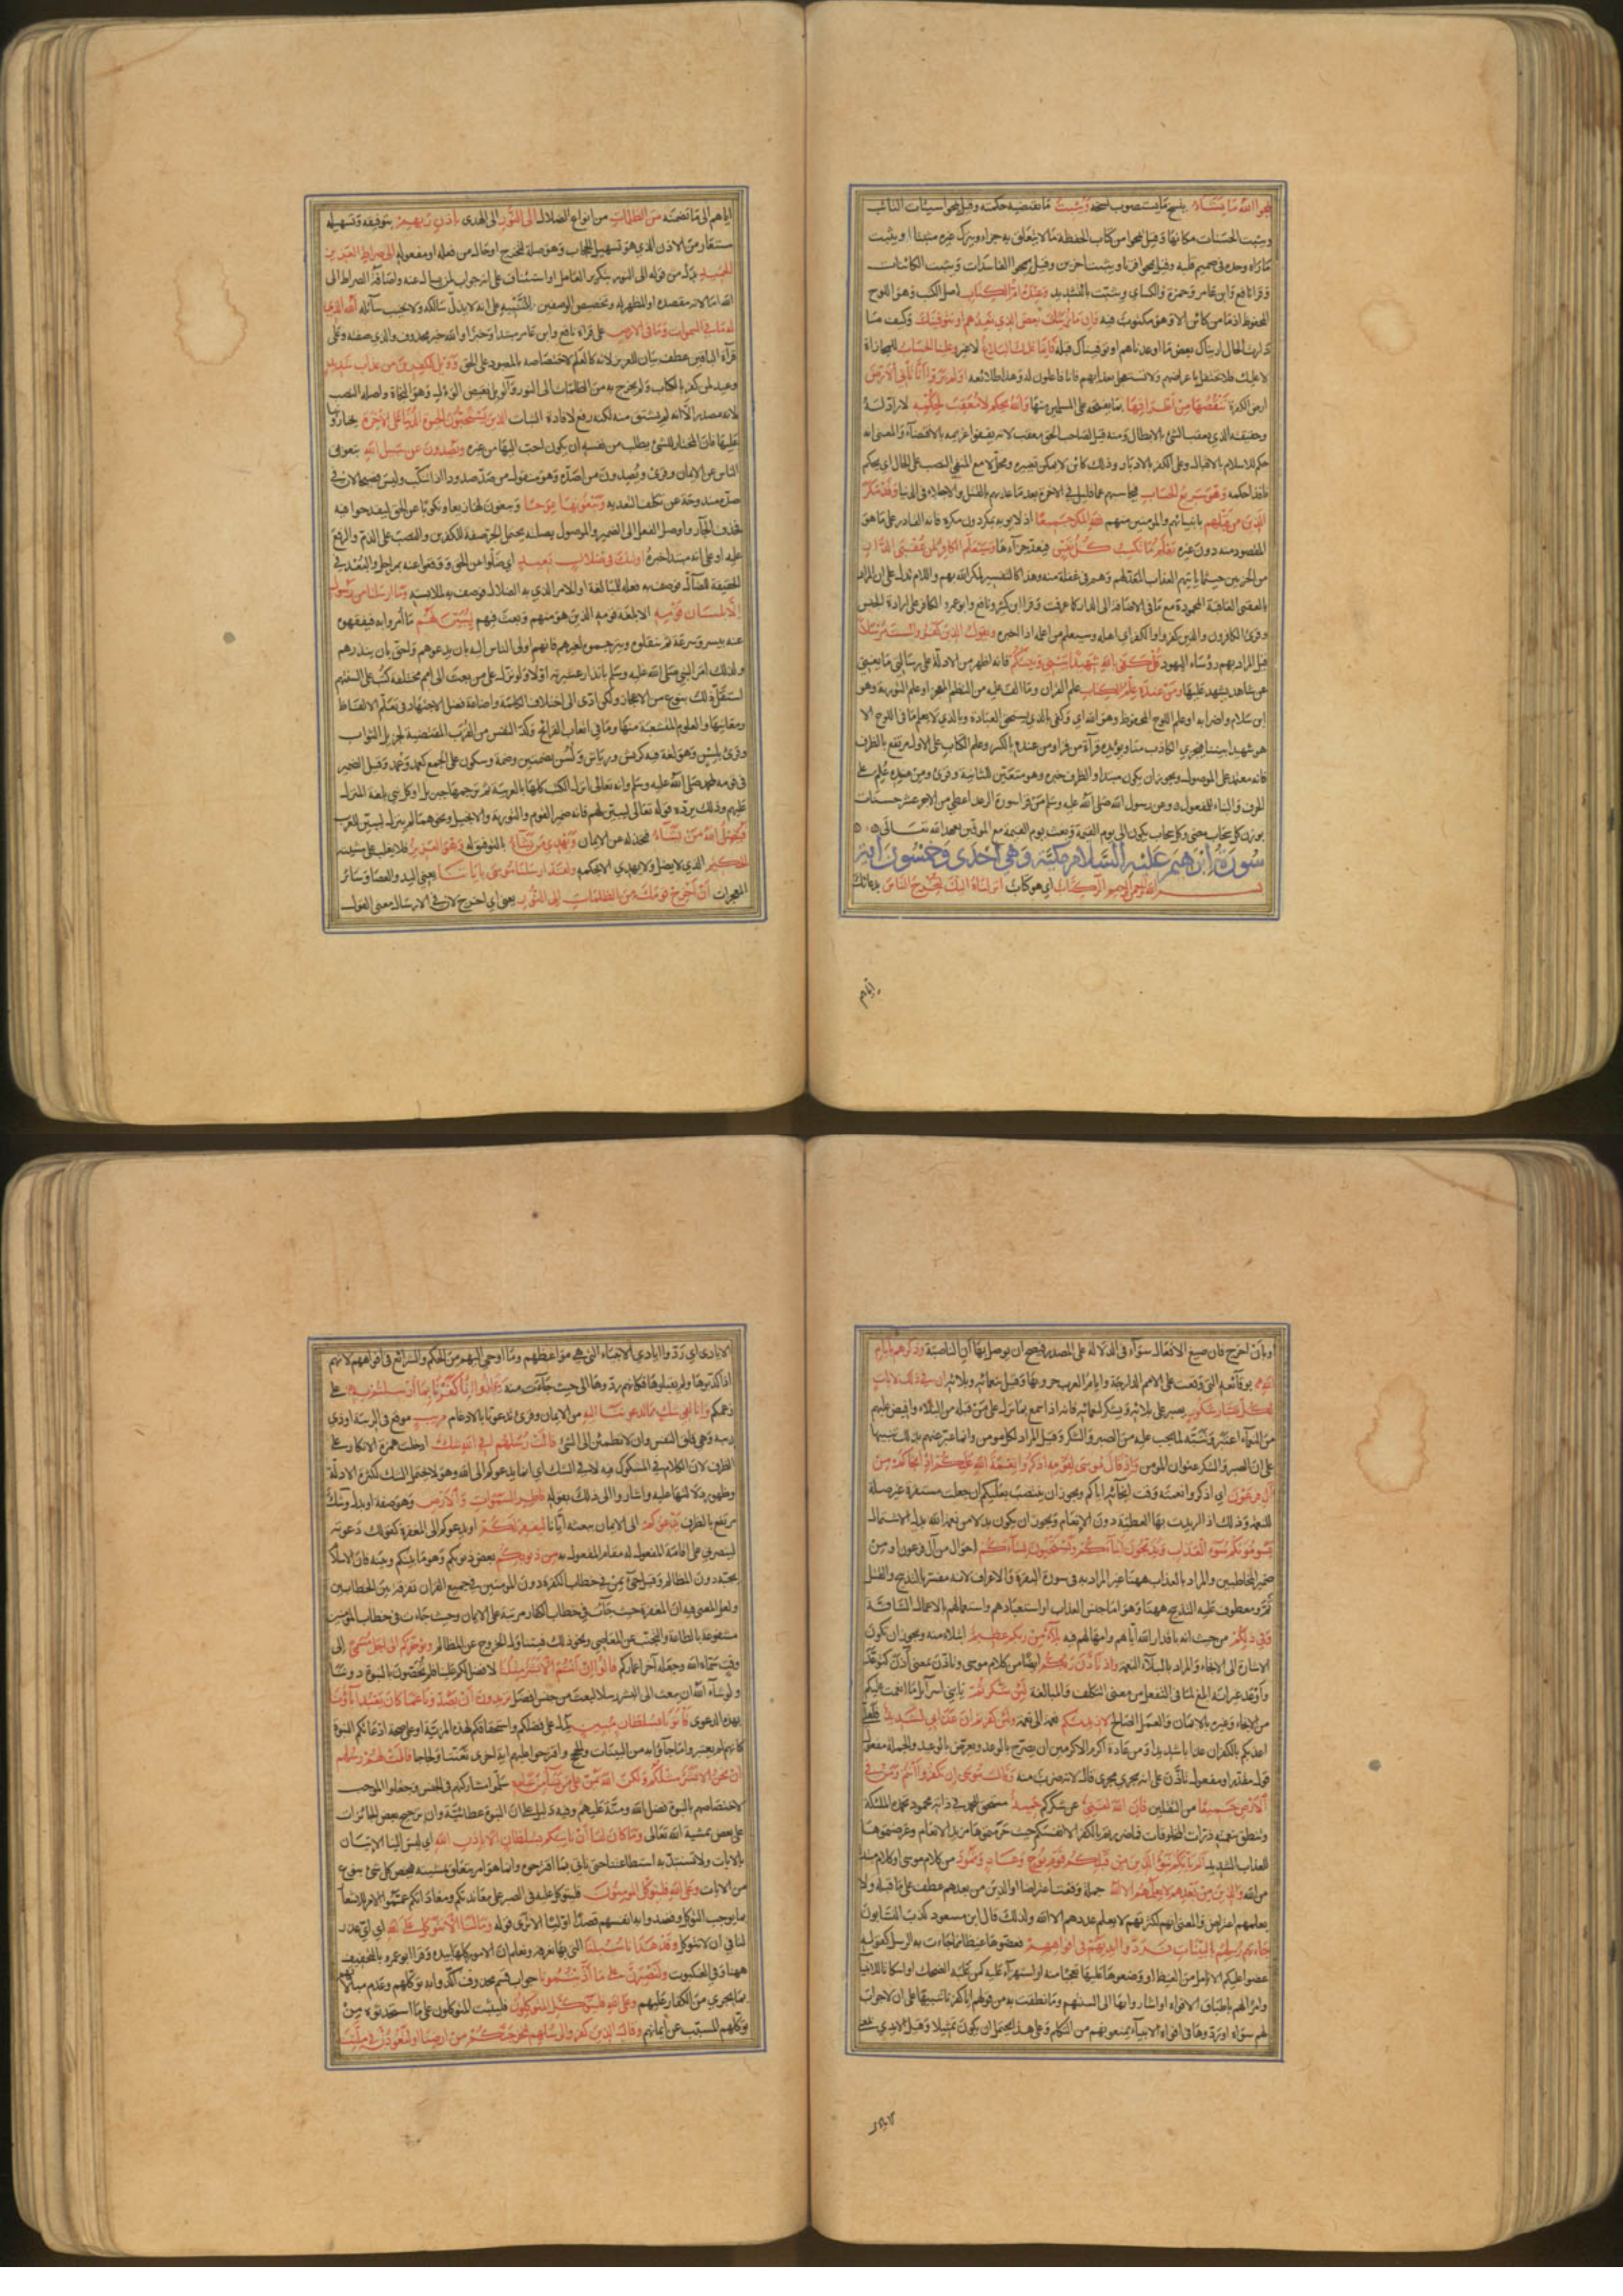 يمحوا الله ما يشاء ينسخ ما يستصوب نسخه ويثبت ما تقتضيه حكمته وقيل يمحوا سيئات التائب
ويثبت الحسنات مكانها وقيل يمحوا من كتاب الحفظة ما لا يتعلق به جزاء ويترك غيره مثبتا او يثبت
ما رآه وحده في صميم قلبه وقيل يمحوا قرنا ويثبت آخرين وقيل يمحوا الفاسدات ويثبت الكائنات
وقرا نافع وابن عامر وحمزة والكسائي ويثبت بالتشديد وعنده ام الكتاب اصل الكتب وهو اللوح
المحفوظ اذ ما من كائن الا وهو مكتوب فيه وان ما نرينك بعض الذي نعدهم او نتوفينك وكيف ما
دارت الحال اريناك بعض ما اوعدناهم او توفيناك قبله فانما عليك البلاغ لا غير وعلينا الحساب للمجازاة
لا عليك فلا تحتفل باعراضهم ولا تستعجل بعذابهم فانا فاعلون له وهذا طلائعه اولم يروا انا نأتي الارض
ارض الكفرة ننقصها من اطرافها بما نفتحه على المسلمين منها والله يحكم لا معقب لحكمه لا راد له
وحقيقته الذي يعقب الشئ بالابطال ومنه قيل لصاحب الحق معقب لانه يقفو غريمه بالاقتضاء والمعنى انه
حكم للاسلام بالاقبال وعلى الكفر بالادبار وذلك كائن لا يمكن تغييره ومحل لا مع المنفي النصب على الحال اي يحكم
نافذا حكمه وهو سريع الحساب فيحاسبهم عما قليل في الاخرة بعد ما عذبهم بالقتل والاجلاء في الدنيا وقد مكر
الذين من قبلهم بانبيائهم والمومنين منهم فلله المكر جميعا اذ لا يوبه بمكر دون مكره فانه القادر على ما هو
المقصود منه دون غيره يعلم ما تكسب كل نفس فيعد جزاءها وسيعلم الكافر لمن عقبى الدار
من الحزبين حيثما ياتيهم العذاب المعد لهم وهم في غفلة منه وهذا كالتفسير لمكر الله بهم واللام تدل على ان المراد
بالعقبى العاقبة المحمودة مع ما في الاضافة الى الدار كما عرفت وقرا ابن كثير ونافع وابو عمرو الكافر على ارادة الجنس
وقرئ الكافرون والذين كفروا والكفر اي اهله وسيعلم من اعلمه اذا اخبره ويقول الذين كفروا لست مرسلا
قيل المراد بهم رؤساء اليهود قل كفى بالله شهيدا بيني وبينكم فانه اظهر من الادلة على رسالتي ما يغني
عن شاهد يشهد عليها ومن عنده علم الكتاب علم القران وما الف عليه من النظم المعجز او علم التورية وهو
ابن سلام واضرابه او علم اللوح المحفوظ وهو الله اي وكفى بالذي يستحق العبادة وبالذي لا يعلم ما في اللوح الا
هو شهيدا بيننا فيخزي الكاذب منا ويؤيده قرآءة من قرا ومن عنده بالكسر وعلم الكتاب على الاول مرتفع بالظرف
فانه معتمد على الموصول ويجوز ان يكون مبتدا والظرف خبره وهو متعين للثانية وقرئ ومن عنده علم على
الحرف والبناء للمفعول وعن رسول الله صلى الله عليه وسلم من قرا سورة الرعد اعطي من الاجر عشر حسنات
بوزن كل سحاب مضى وكل سحاب يكون الى يوم القيمة وبعث يوم القيمة مع الموفين بعهد الله تعالى
سورة ابرهيم عليه السلام مكية وهي احدى وخمسون اية
بسم الله الرحمن الرحيم الر كتاب اي هو كتاب انزلناه اليك لتخرج الناس بدعائك
اياهم
اياهم الى ما تضمنه من الظلمات من انواع الضلال الى النور الى الهدى باذن ربهم بتوفيقه وتسهيله
مستعار من الاذن الذي هو تسهيل الحجاب وهو صلة لتخرج او حال من فعله او مفعوله الى صراط العزيز
الحميد بدل من قوله الى النور بتكرير العامل او استئناف على انه جواب لمن يسال عنه واضافة الصراط الى
الله اما لانه مقصده او المظهر له وتخصيص الوصفين للتنبيه على انه لا يذل سالكه ولا يخيب سائله الله الذي
له ما في السموات وما في الارض على قراة نافع وابن عامر مبتدا وخبر او الله خبر محذوف والذي صفته وعلى
قرآة الباقين عطف بيان للعزيز لانه كالعلم لاختصاصه بالمعبود على الحق وويل للكفرين من عذاب شديد
وعيد لمن كفر بالكتاب ولم يخرج به من الظلمات الى النور والويل نقيض الوأل وهو النجاة واصله النصب
لانه مصدر الا انه لم يشتق منه لكنه رفع لافادة الثبات الذين يستحبون الحيوة الدنيا على الآخرة يختارونها
عليها فان المختار للشئ يطلب من نفسه ان يكون احب اليها من غيره ويصدون عن سبيل الله بتعويق
الناس عن الايمان وقرئ ويصدون من اصده وهو منقول من صد صدودا اذا تنكب وليس فصيحا لان في
صده مندوحة عن تكلف التعدية ويبغونها عوجا ويبغون لها زيغا ونكوبا عن الحق ليقدحوا فيه
فحذف الجار واوصل الفعل الى الضمير والموصول بصلته يحتمل الجر صفة للكفرين والنصب على الذم والرفع
عليه او على انه مبتدا خبره اولئك في ضلال بعيد اي ضلوا عن الحق ووقعوا عنه بمراحل والبعد في
الحقيقة للضال فوصف به فعله للمبالغة او للامر الذي به الضلال فوصف به لملابسته وما ارسلنا من رسول
الا بلسان قومه الا بلغة قومه الذين هو منهم وبعث فيهم ليبين لهم ما أمروا به فيفقهوه
عنه بيسر وسرعة ثم ينقلوه ويترجموه لغيرهم فانهم اولى الناس اليه بان يدعوهم واحق بان ينذرهم
ولذلك امر النبي صلى الله عليه وسلم بانذار عشيرته اولا ولو نزل على من بعث الى امم مختلفة كتب على السنتهم
استقل ذلك بنوع من الاعجاز ولكن ادى الى اختلاف الكلمة واضاعة فضل الاجتهاد في تعلم الالفاظ
ومعانيها والعلوم المتشعبة منها وما في اتعاب القرائح وكد النفس من القرب المقتضية لجزيل الثواب
وقرئ بلسن وهو لغة فيه كريش ورياش ولسن بضمتين وضمة وسكون على الجمع كعمد وعمد وقيل الضمير
في قومه لمحمد صلى الله عليه وسلم وانه تعالى انزل الكتب كلها بالعربية ثم ترجمها جبريل او كل نبي بلغة المنزل
عليهم وذلك يرده قوله تعالى ليبين لهم فانه ضمير القوم والتورية والانجيل ونحوهما لم ينزل ليبين للعرب
فيضل الله من يشاء فيخذله عن الايمان ويهدي من يشاء بالتوفيق له وهو العزيز فلا يغلب على مشيته
الحكيم الذي لا يضل ولا يهدي الا بحكمه ولقد ارسلنا موسى باياتنا يعني اليد والعصا وسائر
المعجزات ان اخرج قومك من الظلمات الى النور بمعنى اي اخرج لان في الارسال معنى القول
او بان اخرج فان صيغ الافعال سوآء في الدلالة على المصدر فيصح ان يوصل بها ان الناصبة وذكرهم بايام
الله بوقائعه التي وقعت على الامم الدارجة وايام العرب حروبها وقيل بنعمائه وبلائه ان في ذلك لايات
لكل صبار شكور يصبر على بلائه ويشكر لنعمائه فانه اذا سمع بما نزل على من قبله من البلاء وافيض عليهم
من النعمآء اعتبر وتنبه لما يجب عليه من الصبر والشكر وقيل المراد لكل مومن وانما عبر عنهم بذلك تنبيها
على ان الصبر والشكر عنوان المومن واذ قال موسى لقومه اذكروا نعمة الله عليكم اذ انجاكم من
آل فرعون اي اذكروا نعمته وقت انجائه اياكم ويجوز ان ينتصب بعليكم ان جعلت مستقرة غير صلة
للنعمة وذلك اذا اريدت بها العطية دون الانعام ويجوز ان يكون بدلا من نعمة الله بدل الاشتمال
يسومونكم سوء العذاب ويذبحون ابنآءكم ويستحيون نسآءكم احوال من آل فرعون او من
ضمير المخاطبين والمراد بالعذاب ههنا غير المراد به في سورة البقرة والاعراف لانه مفسر بالتذبيح والقتل
ثم ومعطوف عليه التذبيح ههنا وهو اما جنس العذاب او استعبادهم واستعمالهم بالاعمال الشاقة
وفي ذلكم من حيث انه باقدار الله اياهم وامهالهم فيه بلاء من ربكم عظيم ابتلاء منه ويجوز ان يكون
الاشارة الى الانجاء والمراد بالبلآء النعمة واذ تأذن ربكم ايضا من كلام موسى وتاذن بمعنى آذن كتوعد
واوعد غير انه ابلغ لما في التفعل من معنى التكلف والمبالغة لئن شكرتم يا بني اسرآيل ما انعمت عليكم
من الانجاء وغيره بالايمان والعمل الصالح لازيدنكم نعمة الى نعمة ولئن كفرتم ان عذابي لشديد فلعلي
اعذبكم بالكفران عذابا شديدا ومن عادة اكرم الاكرمين ان يصرح بالوعد ويعرض بالوعيد والجملة مفعول
قول مقدر او مفعول تاذن على انه يجري مجرى قال لانه ضرب منه وقال موسى ان تكفروا انتم ومن في
الارض جميعا من الثقلين فان الله لغني عن شكركم حميد مستحق للحمد في ذاته محمود تحمده الملئكة
وتنطق بنعمته ذرات المخلوقات فما ضررتم بالكفر الا انفسكم حيث حرمتموها مزيد الانعام وعرضتموها
للعذاب الشديد الم يأتكم نبؤ الذين من قبلكم قوم نوح وعاد وثمود من كلام موسى او كلام مبتدا
من الله والذين من بعدهم لا يعلمهم الا الله جملة وقعت اعتراضا او الذين من بعدهم عطف على ما قبله ولا
يعلمهم اعتراض والمعنى انهم لكثرتهم لا يعلم عددهم الا الله ولذلك قال ابن مسعود كذب النسابون
جاءتهم رسلهم بالبينات فردوا ايديهم في افواههم فعضوها غيظا مما جاءت به الرسل كقوله
عضوا عليكم الانامل من الغيظ او وضعوها عليها تعجبا منه او استهزآء عليه كمن غلبه الضحك او اسكاتا للانبيا
وامرا لهم باطباق الافواه او اشاروا بها الى السنتهم وما نطقت به من قولهم انا كفرنا تنبيها على ان لا جواب
لهم سواه او ردوها في افواه الانبيآء يمنعونهم من التكلم وعلى هذا يحتمل ان يكون تمثيلا وقيل الايدي بمعنى
الايادي اي ردوا ايادي الانبياء التي هي مواعظهم وما اوحي اليهم من الحكم والشرائع في افواههم لانهم
اذا كذبوها ولم يقبلوها فكانهم ردوها الى حيث جآءت منه وقالوا انا كفرنا بما ارسلتم به على
زعمكم وانا لفي شك مما تدعوننا اليه من الايمان وقرئ تدعونا بالادغام مريب موقع في الريبة او ذي
ريبة وهي قلق النفس وان لا تطمئن الى الشئ قالت رسلهم افي الله شك ادخلت همزة الانكار على
الظرف لان الكلام في المشكوك فيه لا في الشك اي انما ندعوكم الى الله وهو لا يحتمل الشك لكثرة الادلة
وظهور دلالتها عليه واشاروا الى ذلك بقوله فاطر السموات والارض وهو صفة او بدل وشك
مرتفع بالظرف يدعوكم الى الايمان ببعثه ايانا ليغفر لكم او يدعوكم الى المغفرة كقولك دعوته
لينصرني على اقامة المفعول له مقام المفعول به من ذنوبكم بعض ذنوبكم وهو ما بينكم وبينه فان الاسلام
يجبه دون المظالم وقيل جئ بمن في خطاب الكفرة دون المومنين في جميع القران تفرقة بين الخطابين
ولعل المعنى فيه ان المغفرة حيث جآءت في خطاب الكفار مرتبة على الايمان وحيث جاءت في خطاب المؤمنين
مشفوعة بالطاعة والتجنب عن المعاصي ونحو ذلك فيتناول الخروج عن المظالم ويؤخركم الى اجل مسمى الى
وقت سماه الله وجعله آخر اعماركم قالوا ان انتم الا بشر مثلنا لا فضل لكم علينا فلم تخصون بالنبوة دوننا
ولو شآء الله ان يبعث الى البشر رسلا لبعث من جنس افضل تريدون ان تصدونا عما كان يعبد اباؤنا
بهذه الدعوى فأتونا بسلطان مبين يدل على فضلكم واستحقاقكم لهذه المزية او على صحة ادعائكم النبوة
كانهم لم يعتبروا ما جاؤا به من البينات والحجج واقترحوا عليهم اية اخرى تعنتا ولجاجا قالت لهم رسلهم
ان نحن الا بشر مثلكم ولكن الله يمن على من يشاء من عباده سلموا مشاركتهم في الجنس وجعلوا الموجب
لاختصاصهم بالنبوة فضل الله ومنه عليهم وفيه دليل على ان النبوة عطائية وان ترجيح بعض الجائزات
على بعض بمشية الله تعالى وما كان لنا ان نأتيكم بسلطان الا باذن الله اي ليس الينا الاتيان
بالايات ولا تستبد به استطاعتنا حتى ناتي بما اقترحتموه وانما هو امر يتعلق بمشيئته فيخص كل نبي بنوع
من الايات وعلى الله فليتوكل المومنون فليتوكل عليه في الصبر على معاندتكم ومعاداتكم عمموا الامر للاشعار
بما يوجب التوكل وقصدوا به انفسهم قصدا اوليا الا ترى قوله وما لنا الا نتوكل على الله اي اي عذر
لنا في ان لا نتوكل وقد هدانا سبلنا التي بها نعرفه ونعلم ان الامور كلها بيده وقرا ابو عمرو بالتخفيف
ههنا وفي العنكبوت ولنصبرن على ما آذيتمونا جواب قسم محذوف اكدوا به توكلهم وعدم مبالاتهم
بما يجري من الكفار عليهم وعلى الله فليتوكل المتوكلون فليثبت المتوكلون على ما استحدثوه من
توكلهم المسبب عن ايمانهم وقال الذين كفروا لرسلهم لنخرجنكم من ارضنا او لتعودن في ملتنا